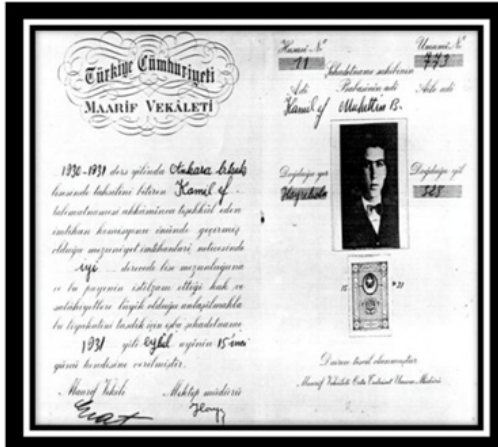 Türkiye Cümhuriyeti
MAARİF VEKÂLETİ
1930-1931 ders yılında Ankara Erkek
lisesinde tahsilini bitiren Kamil ef.
talimatnamesi ahkâmınca teşekkül eden
imtihan komisyonu önünde geçirmiş
olduğu mezuniyet imtihanları neticesinde
iyi derecede lise mezunluğuna
ve bu payenin istilzam ettiği hak ve
salâhiyetlere lâyik olduğu anlaşılmakla
bu liyakatini tasdik için işbu şehadetname
1931 yılı eylül ayının 15'inci
günü kendisine verilmiştir.
Maarif Vekili Mektep müdürü
Hususî № Umumî №
11 773
Şehadetname sahibinin
Adı Babasının adı Aile adı
Kamil ef Muhittin B.
Doğduğu yer Doğduğu yıl
Hayrebolu 328
15 31
Maarif Vekâleti Orta Tedrisat Umum Müdürü